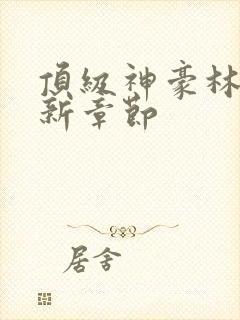 頂級神豪林
新章節
居舍